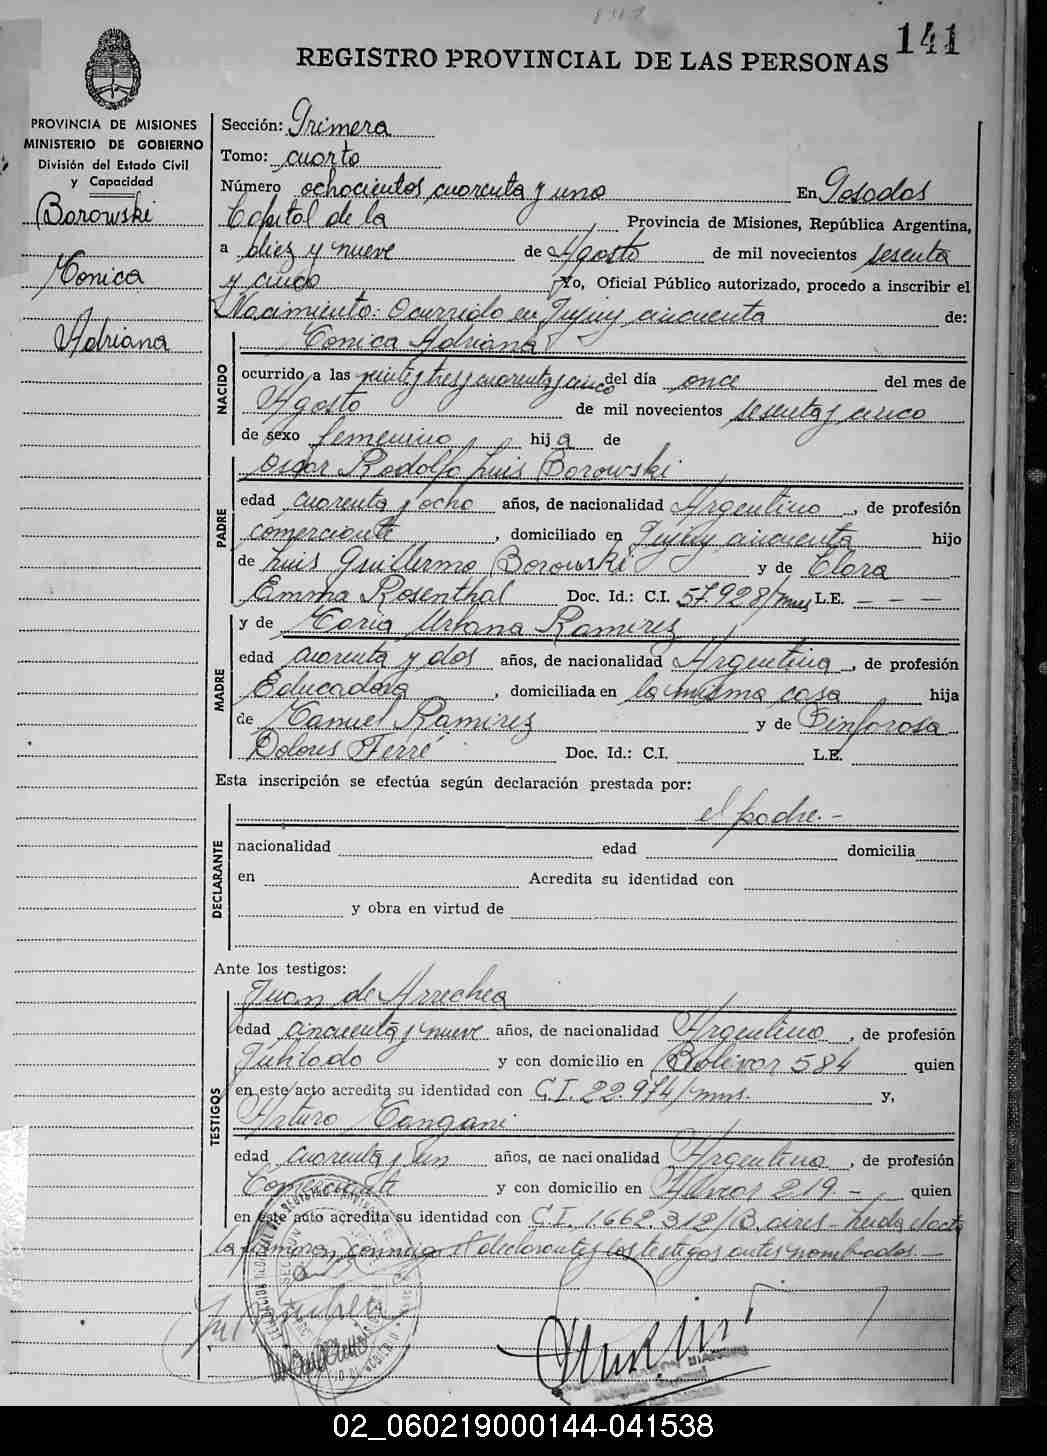 141
REGISTRO PROVINCIAL DE LAS PERSONAS
PROVINCIA DE MISIONES
MINISTERIO DE GOBIERNO
División del Estado Civil
y Capacidad
Borowski
Monica
Adriana
Sección: Primera
Tomo: cuarto
Número ochocientos cuarenta y uno En Posadas
Capital de la Provincia de Misiones, República Argentina,
a diez y nueve de Agosto de mil novecientos sesenta
y cinco Yo, Oficial Público autorizado, procedo a inscribir el
Nacimiento: Ocurrido en Jujuy cincuenta de:
NACIDO
Monica Adriana
ocurrido a las veinte y tres y cuarenta y cinco del día once del mes de
Agosto de mil novecientos sesenta y cinco
de sexo femenino hija de
PADRE
Oscar Rodolfo Luis Borowski
edad cuarenta y ocho años, de nacionalidad Argentino, de profesión
comerciante, domiciliado en Jujuy cincuenta hijo
de Luis Guillermo Borowski y de Clara
Emma Rosenthal Doc. Id.: C.I. 57.928/mns L.E. - - -
y de Maria Urbana Ramirez
MADRE
edad cuarenta y dos años, de nacionalidad Argentina, de profesión
Educadora, domiciliada en la misma casa hija
de Manuel Ramirez y de Sinforosa
Dolores Ferré Doc. Id.: C.I. L.E.
Esta inscripción se efectúa según declaración prestada por:
DECLARANTE
el padre.-
nacionalidad edad domicilia
en Acredita su identidad con
y obra en virtud de
Ante los testigos:
TESTIGOS
Juan de Arrechea
edad cincuenta y nueve años, de nacionalidad Argentino, de profesión
Jubilado y con domicilio en Bolivar 584 quien
en este acto acredita su identidad con C.I. 22.974/mns. y,
Arturo Mangani
edad cuarenta y un años, de nacionalidad Argentino, de profesión
Comerciante y con domicilio en 219 - quien
en este acto acredita su identidad con C.I. 1.662.312/B. aires - Leida el acta
la firman conmigo el declarante y los testigos antes nombrados. -
02_060219000144-041538